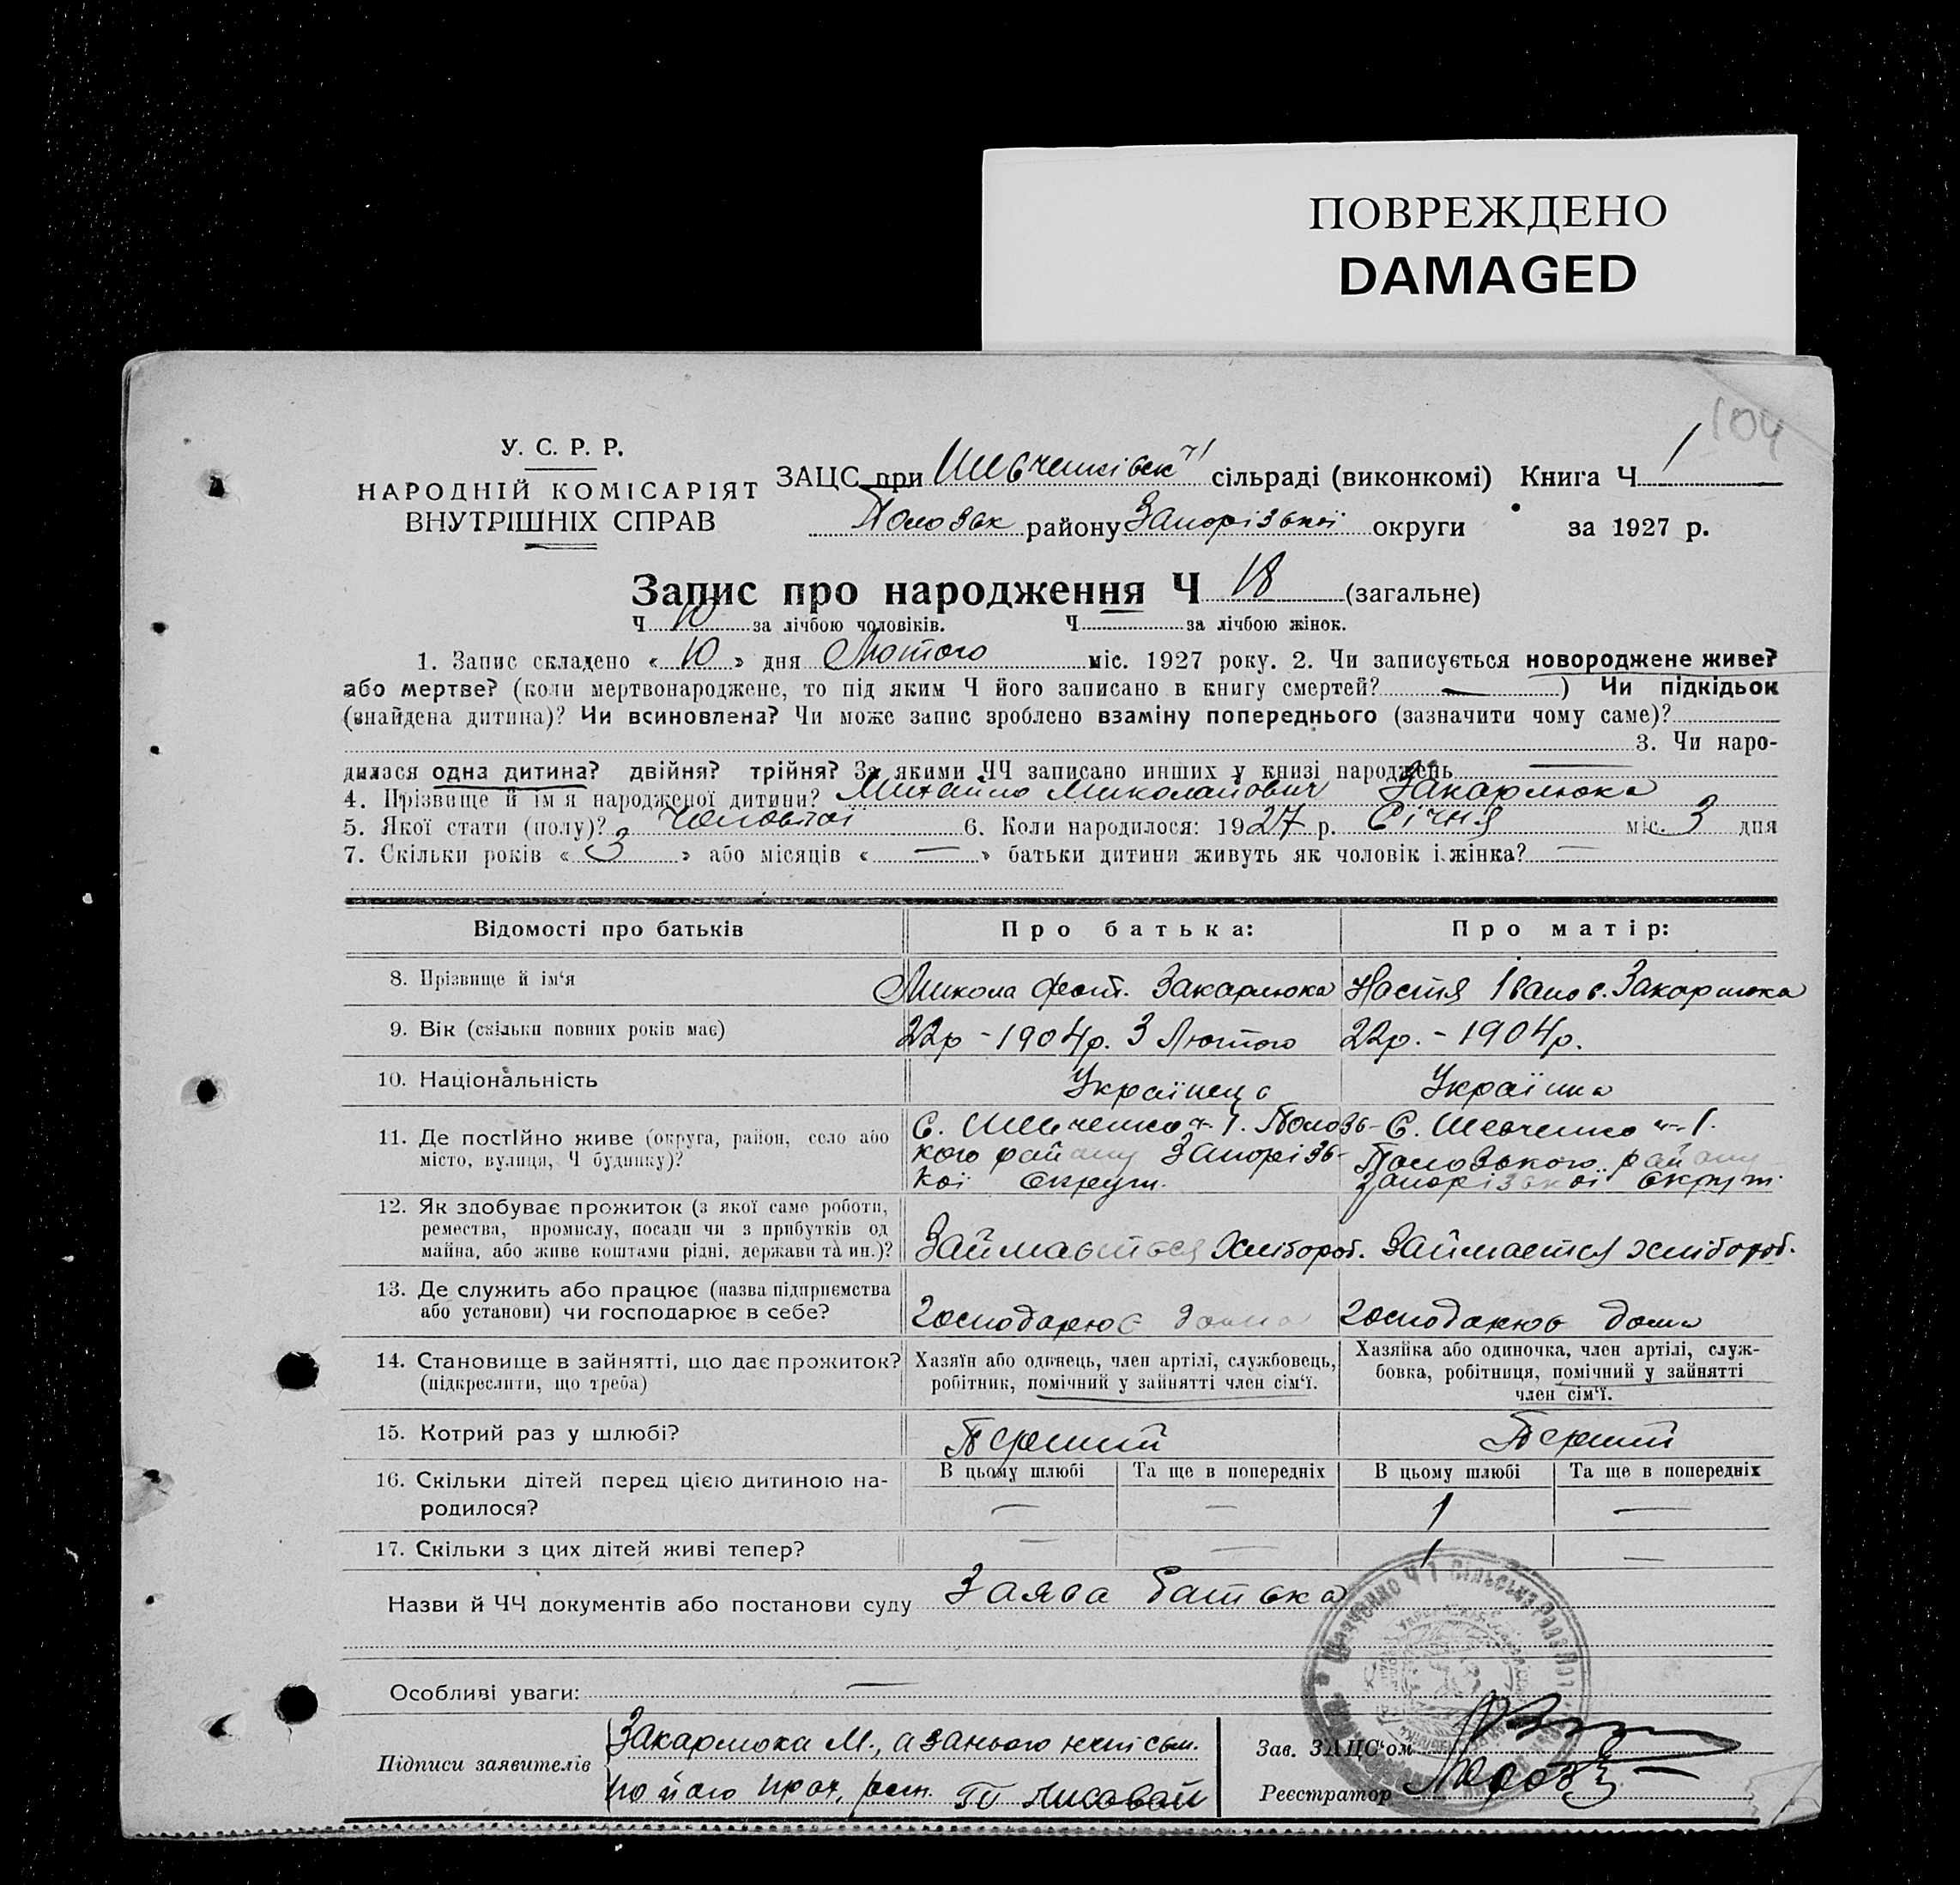 ПОВРЕЖДЕНО
DAMAGED
104
У. С. Р. Р.
НАРОДНІЙ КОМІСАРІЯТ
ВНУТРІШНІХ СПРАВ
ЗАЦС при Шевченківськ ч 1 сільраді (виконкомі) Книга Ч 1
Пологівськ району Запорізької округи за 1927 р.
Запис про народження Ч 18 (загальне)
Ч 10 за лічбою чоловіків. Ч за лічбою жінок.
1. Запис складено « 10 » дня Лютого міс. 1927 року. 2. Чи записується новороджене живе?
або мертве? (коли мертвонароджене, то під яким Ч його записано в книгу смертей? — ) Чи підкідьок
(знайдена дитина)? Чи всиновлена? Чи може запис зроблено взаміну попереднього (зазначити чому саме)?
3. Чи наро-
дилася одна дитина? двійня? трійня? За якими ЧЧ записано инших у книзі народжень —
4. Прізвище й ім'я народженої дитини? Михайло Миколайович Закарлюка
5. Якої стати (полу)? Чоловічої 6. Коли народилося: 1927 р. Січня міс. 3 дня
7. Скільки років « 3 » або місяців « — » батьки дитини живуть як чоловік і жінка? —
Відомості про батьків Про батька: Про матір:
8. Прізвище й ім'я Микола Фот. Закарлюка Настя Іванов. Закарлюка
9. Вік (скільки повних років має) 22р - 1904р. 3 Лютого 22р. - 1904р.
10. Національність Українець Українка
11. Де постійно живе (округа, район, село або
місто, вулиця, Ч будинку)?
С. Шевченко ч. 1. Пологівс-
кого району Запорізь-
кої Округи.
С. Шевченко ч. 1.
Пологівського району
Запорізької Округи.
12. Як здобуває прожиток (з якої саме роботи,
ремества, промислу, посади чи з прибутків од
майна, або живе коштами рідні, держави та ин.)?
Займається Хлібороб. Займается хлібороб.
13. Де служить або працює (назва підприємства
або установи) чи господарює в себе?
Господарює дома Господарює дома
14. Становище в зайнятті, що дає прожиток?
(підкреслити, що треба)
Хазяїн або одинець, член артілі, службовець,
робітник, помічний у зайнятті член сім'ї.
Хазяйка або одиночка, член артілі, служ-
бовка, робітниця, помічний у зайнятті
член сім'ї.
15. Котрий раз у шлюбі? Перший Перший
16. Скільки дітей перед цією дитиною на-
родилося?
В цьому шлюбі Та ще в попередніх В цьому шлюбі Та ще в попередніх
— — 1 —
17. Скільки з цих дітей живі тепер? — — 1 —
Назви й ЧЧ документів або постанови суду Заява батька
Особливі уваги: —
Підписи заявителів
Закарлюка М., а за нього непісьм.
по його прох. рост.
Зав. ЗАЦС'ом
Реєстратор